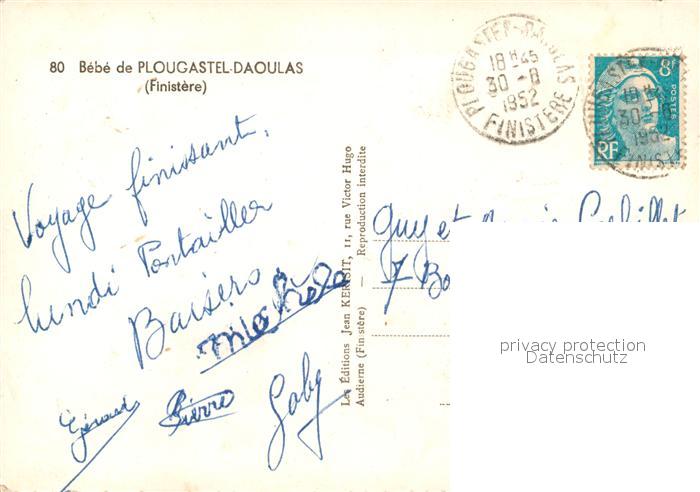 80 Bébé de PLOUGASTEL-DAOULAS
(Finistère)
PLOUGASTEL-DAOULAS
18H45
30-8
1952
FINISTÈRE
8F
POSTES
RF
Voyage finissant.
lundi Pontailler
Baisers
michele
Gérard Pierre Gaby
Les Éditions Jean KERISIT, 11, rue Victor Hugo
Audierne (Finistère) — Reproduction interdite
Guy et
7
privacy protection
Datenschutz